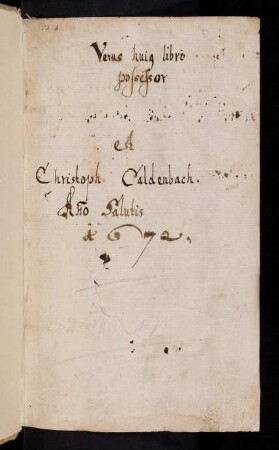 Verus huig libri
possessor
est
Christoph Caldenbach.
Año Salutis
1672.